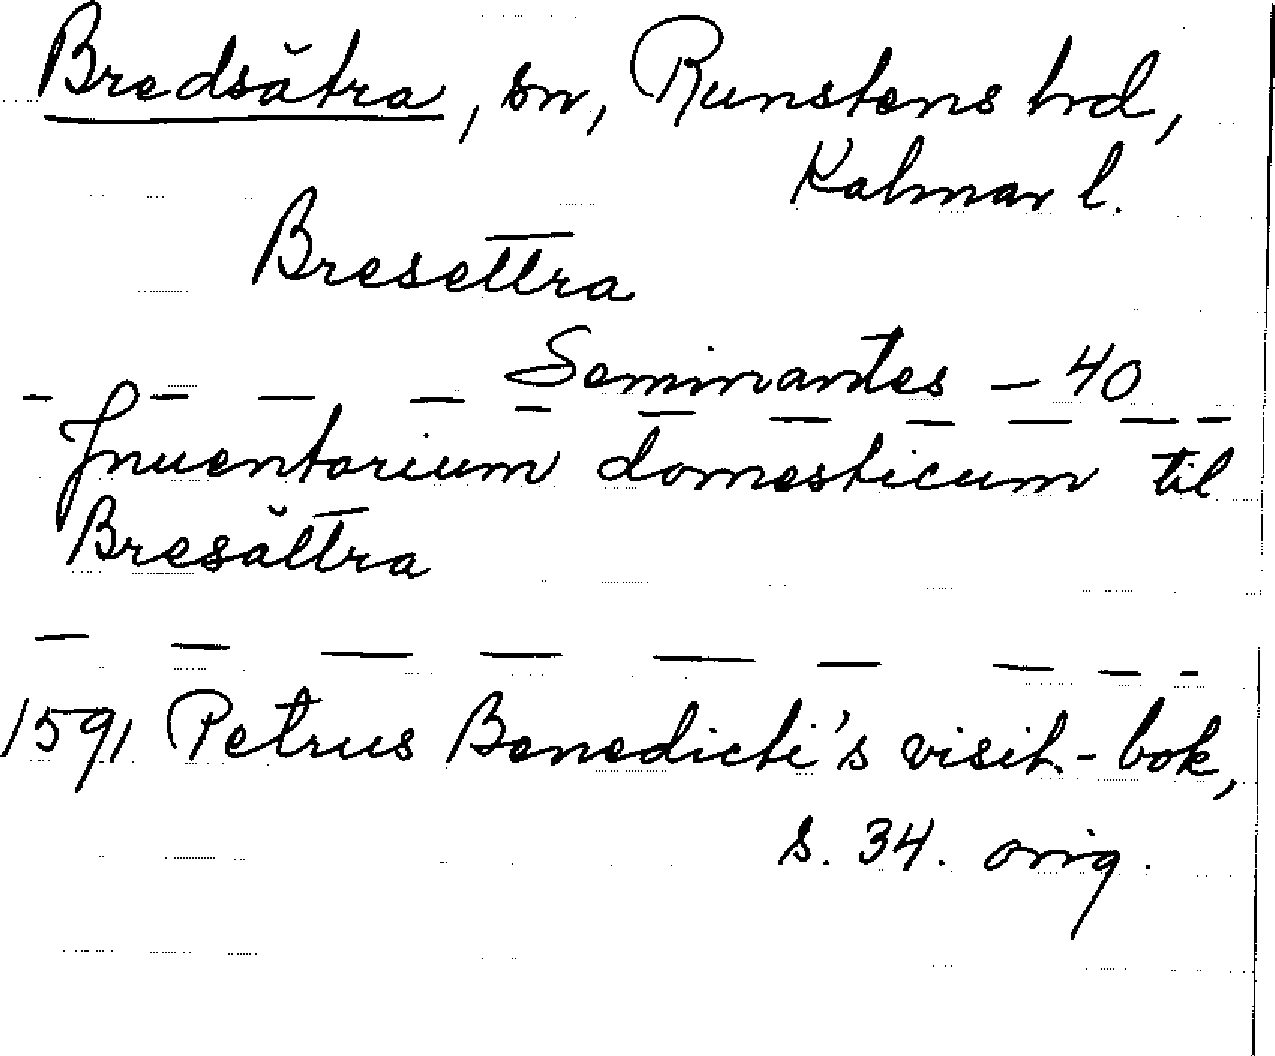 Bredsätra, sn, Runstens hrd,
Kalmar l.
Bresettra
Seminantes - 40
Inuentorium domesticum til
Bresättra
1591 Petrus Benedicti's visit-bok,
s. 34. orig.